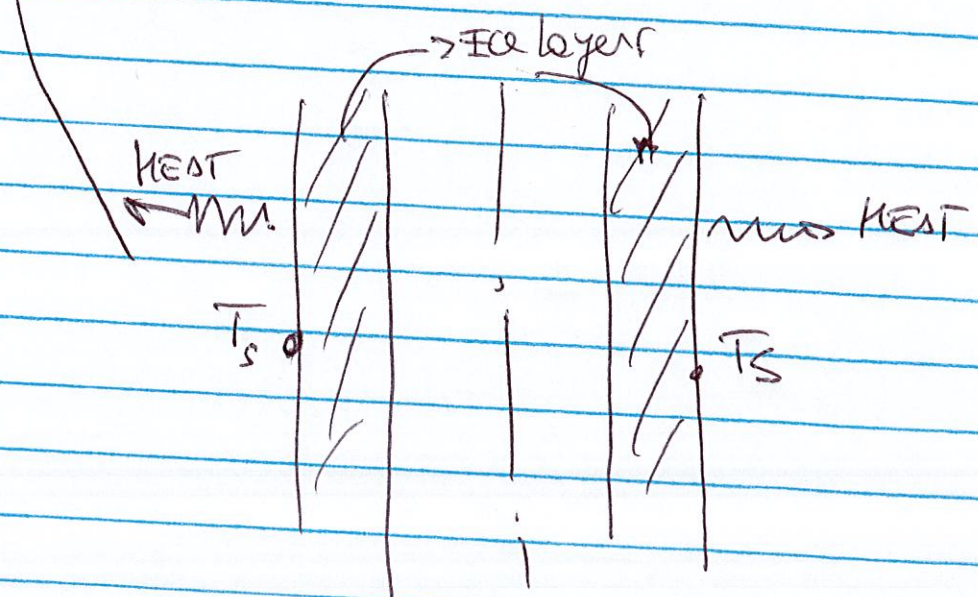 Ice layers
HEAT
HEAT
Ts
Ts